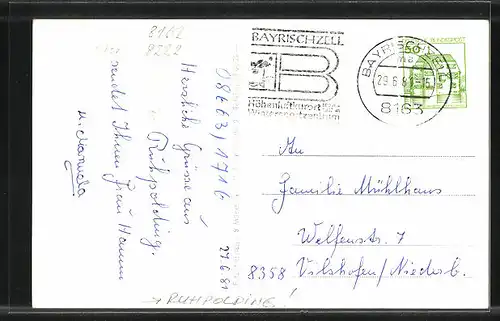 8162
8222
08663/1716
Herzliche Grüsse aus
Ruhpolding.
sendet Ihnen Frau Hamm
u. Manuela
27.6.81
→ RUHPOLDING!
BAYRISCHZELL
B
Höhenluftkurort
Wintersportzentrum
BAYRISCHZELL
29.6.81
8163
50
An
Familie Mühlhaus
Welfenstr. 7
8358 Vilshofen/Niederb.